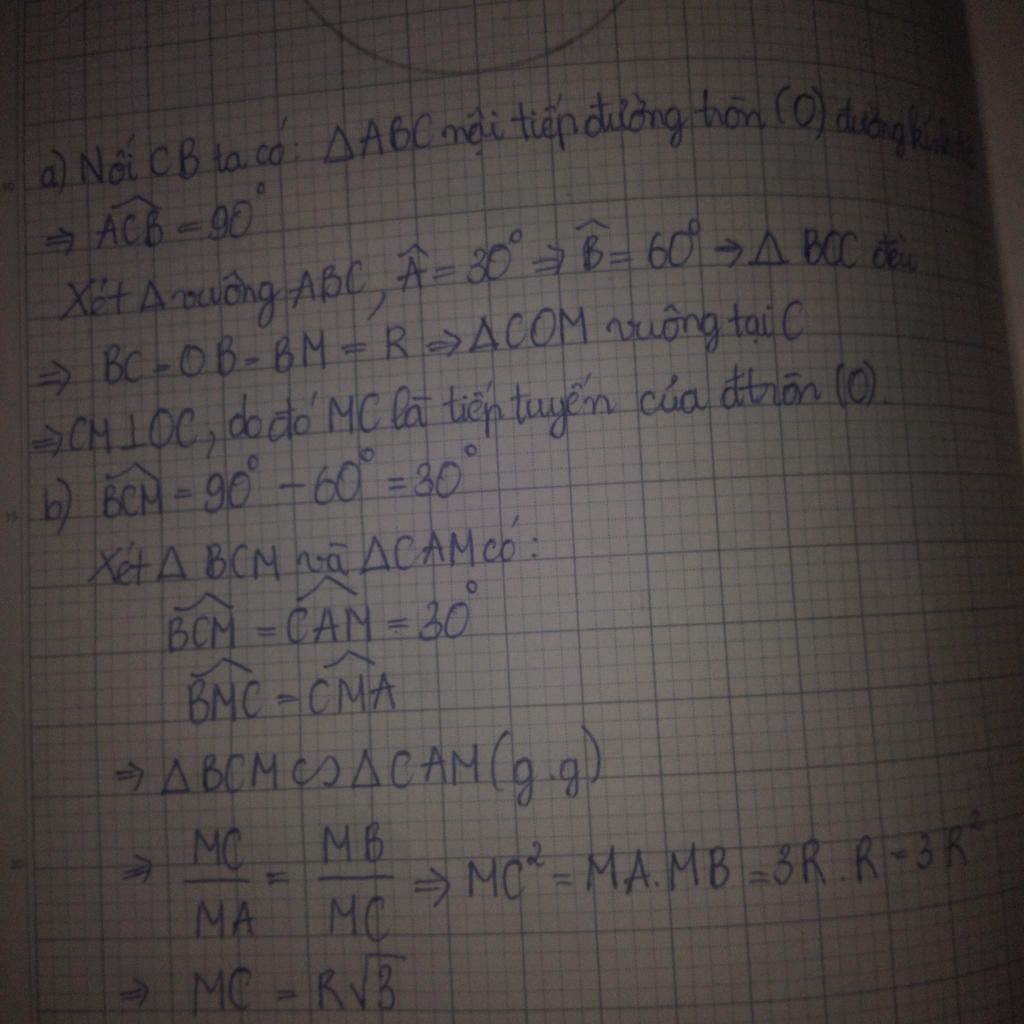 a) Nối CB ta có: △ABC nội tiếp đường tròn (O) đường kính
⇒ ACB = 90°
Xét △ vuông ABC, Â = 30° ⇒ B̂ = 60° → △ BOC đều
⇒ BC = OB = BM = R ⇒ △COM vuông tại C
⇒ CM⊥OC, do đó MC là tiếp tuyến của đtròn (O).
b) BCM = 90° - 60° = 30°
Xét △ BCM và △CAM có:
BCM = CAM = 30°
BMC = CMA
⇒ △BCM ∽ △CAM (g.g)
⇒ MC/MA = MB/MC ⇒ MC² = MA.MB = 3R.R = 3R²
⇒ MC = R√3